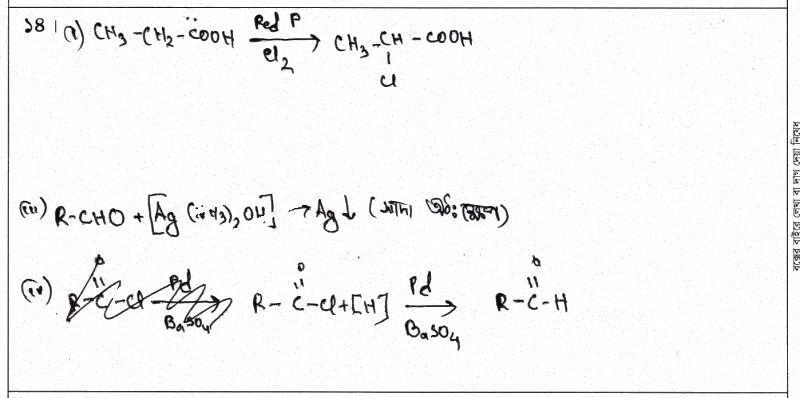 ১৪। (i) CH3 -CH2 -COOH Red P Cl2 → CH3 -CH - COOH
Cl
(iii) R-CHO + [Ag (NH3)2 OH] → Ag↓ (সাদা অধঃক্ষেপ)
(iv) R-C-Cl + [H] Pd BaSO4 → R-C-H
O O
বক্সের বাইরে লেখা বা দাগ দেয়া নিষেধ